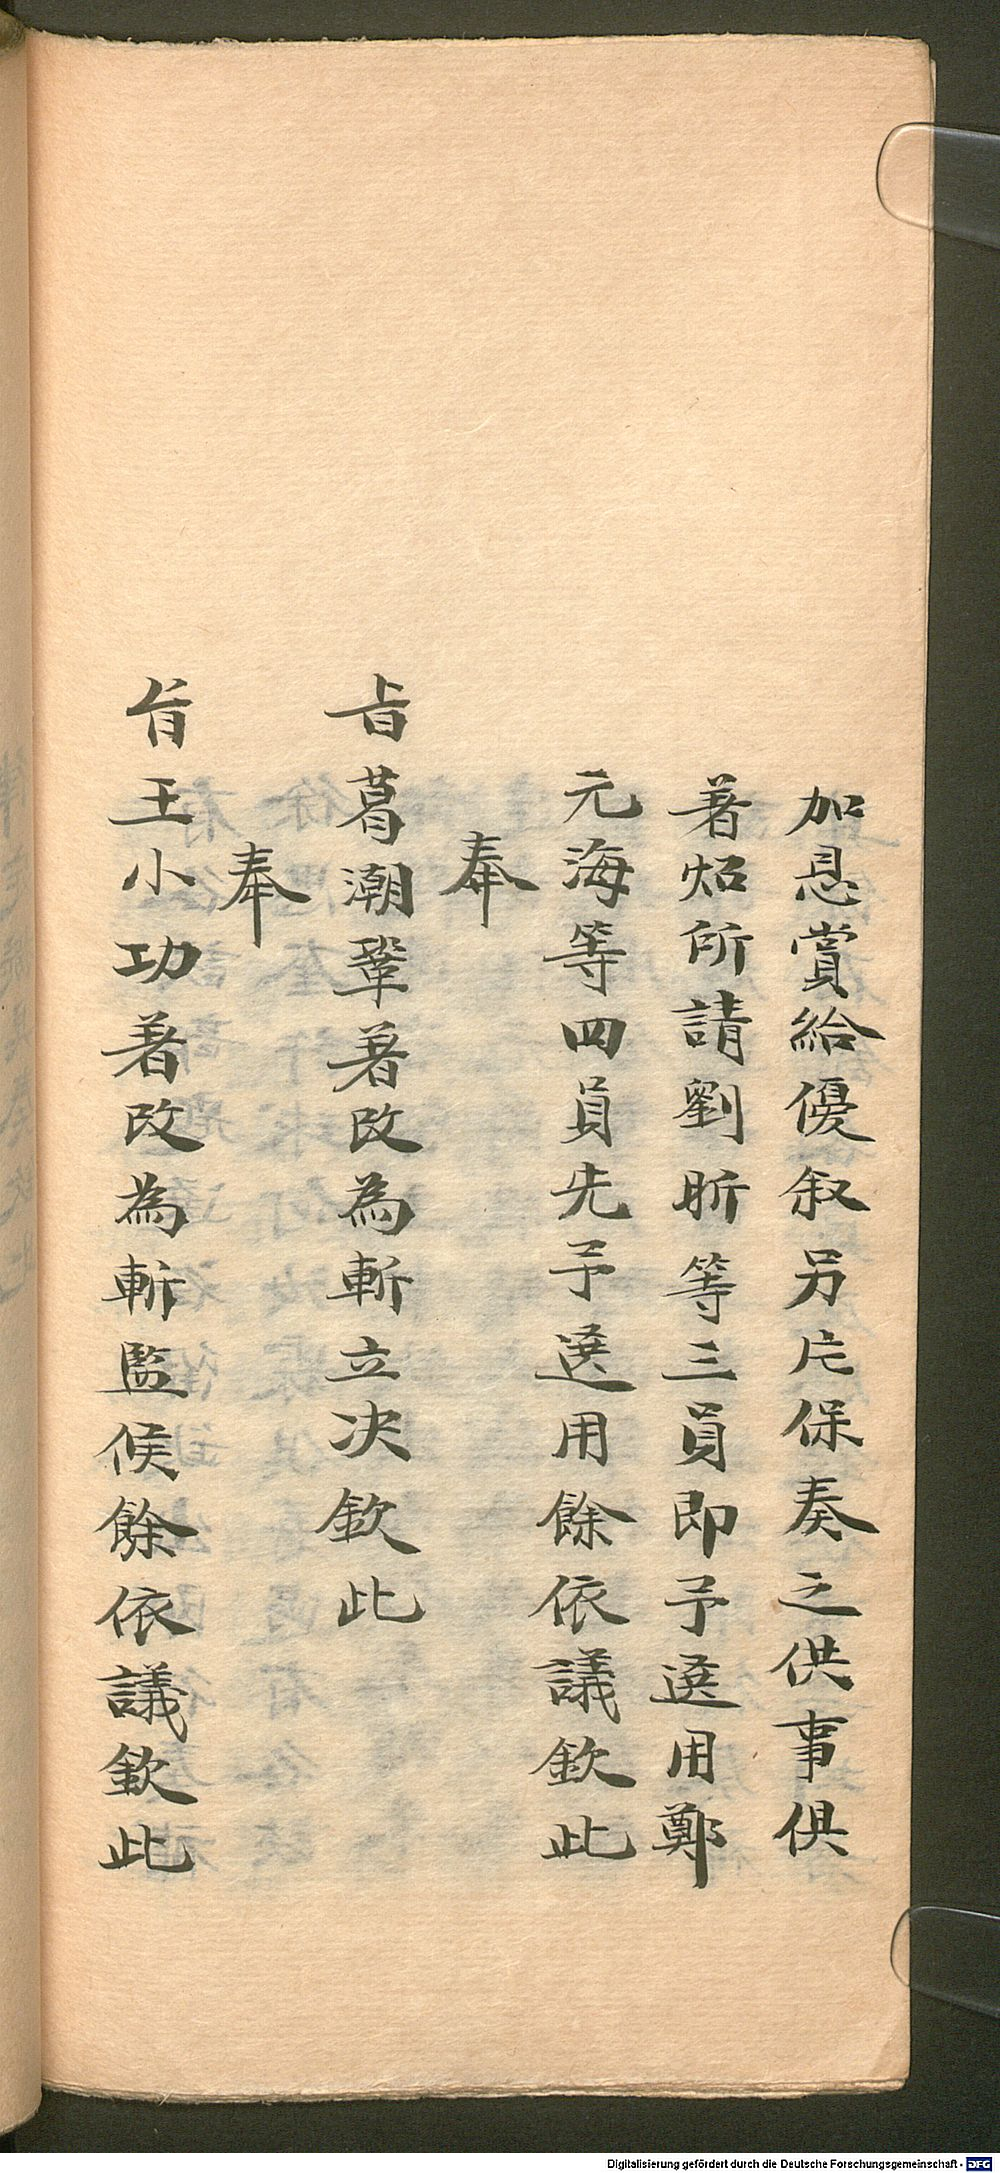 加恩賞給優叙另片保奏之供事俱
著炤所請劉昕等三員即予選用鄭
元海等四員先予選用餘依議欽此
奉
旨葛潮鞏著改為斬立决欽此
奉
旨王小功著改為斬監候餘依議欽此
Digitalisierung gefördert durch die Deutsche Forschungsgemeinschaft - DFG